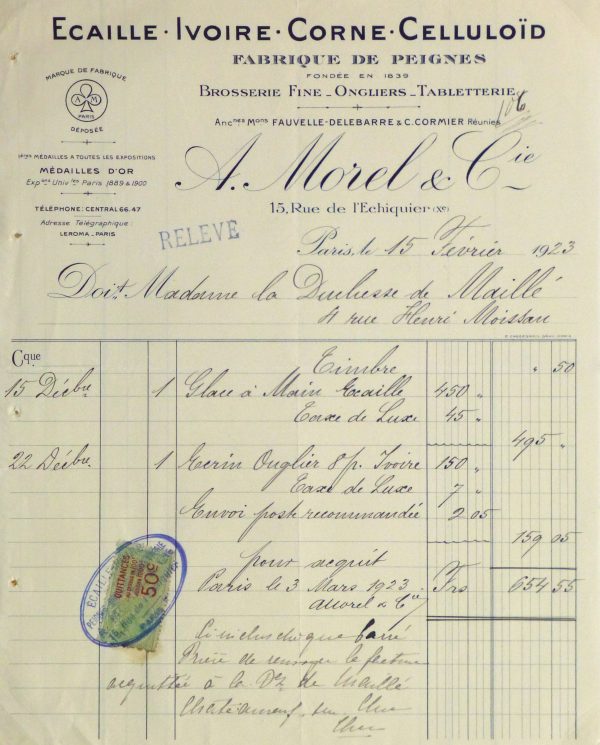 Ecaille · Ivoire · Corne · Celluloïd
Fabrique de Peignes
Fondée en 1839
Brosserie Fine _ Ongliers _ Tabletterie
106
Anc.nes M.ons Fauvelle-Delebarre & C. Cormier Réunies
MARQUE DE FABRIQUE
A M
PARIS
DÉPOSÉE
1ères MÉDAILLES A TOUTES LES EXPOSITIONS
MÉDAILLES D'OR
Exp.ons Univ.les Paris 1889 & 1900
TÉLÉPHONE: CENTRAL 66.47
Adresse Télégraphique:
LEROMA _ PARIS
A. Morel & Cie
15, Rue de l'Echiquier (Xe)
RELEVE
Paris, le 15 Février 1923
Doit Madame la Duchesse de Maillé
4 rue Henri Moissan
Cque
Timbre " 50
15 Débu 1 Glace à Main Ecaille 450 "
Taxe de Luxe 45 "
495 "
22 Débu 1 Ecrin Onglier 8 p. Ivoire 150 "
Taxe de Luxe 7 "
Envoi poste recommandée 2 05
159 05
pour acquit
Paris le 3 Mars 1923 Frs 654 55
A Morel & Cie
QUITTANCES
50c
ECAILLE
Ci inclus chèque barré
Prière de renvoyer la facture
acquittée à la Dsse de Maillé
Chateauneuf sur Cher
Cher